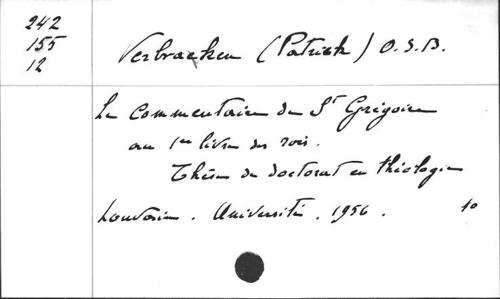 242
155
12
Verbraeken (Patrick) O.S.B.
Le commentaire de St Grégoire
au 1er livre des rois.
Thèse de doctorat en théologie
Louvain. Université. 1956. 4o